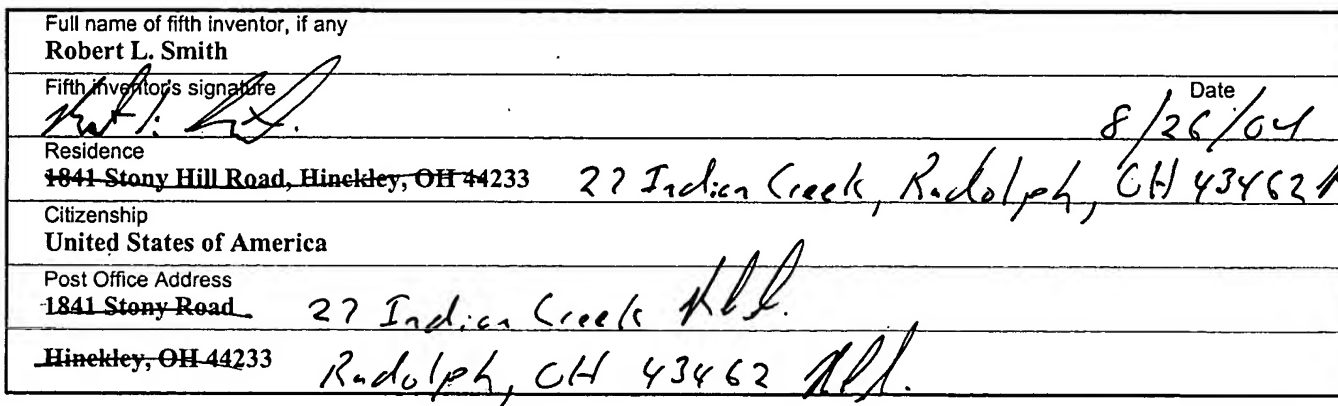 Full name of fifth inventor, if any
Robert L. Smith
Fifth inventor's signature Date
8/26/04
Residence
1841 Stony Hill Road, Hinckley, OH 44233 27 Indian Creek, Rudolph, OH 43462
Citizenship
United States of America
Post Office Address
1841 Stony Road 27 Indian Creek RLS.
Hinckley, OH 44233 Rudolph, OH 43462 RLS.